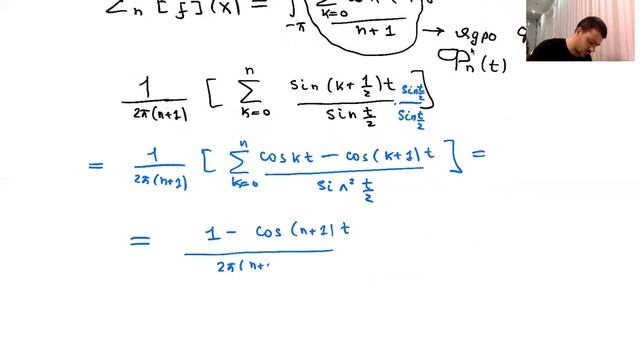 Σ_n [f](x) = ∫_{-π} Σ_{k=0} / n+1 → ядро
Φ_n(t)
1/2π(n+1) [ Σ_{k=0}^{n} sin(k+1/2)t / sin t/2 · sin t/2 / sin t/2 ]
= 1/2π(n+1) [ Σ_{k=0}^{n} cos kt − cos(k+1)t / sin² t/2 ] =
= 1 − cos(n+1)t / 2π(n+